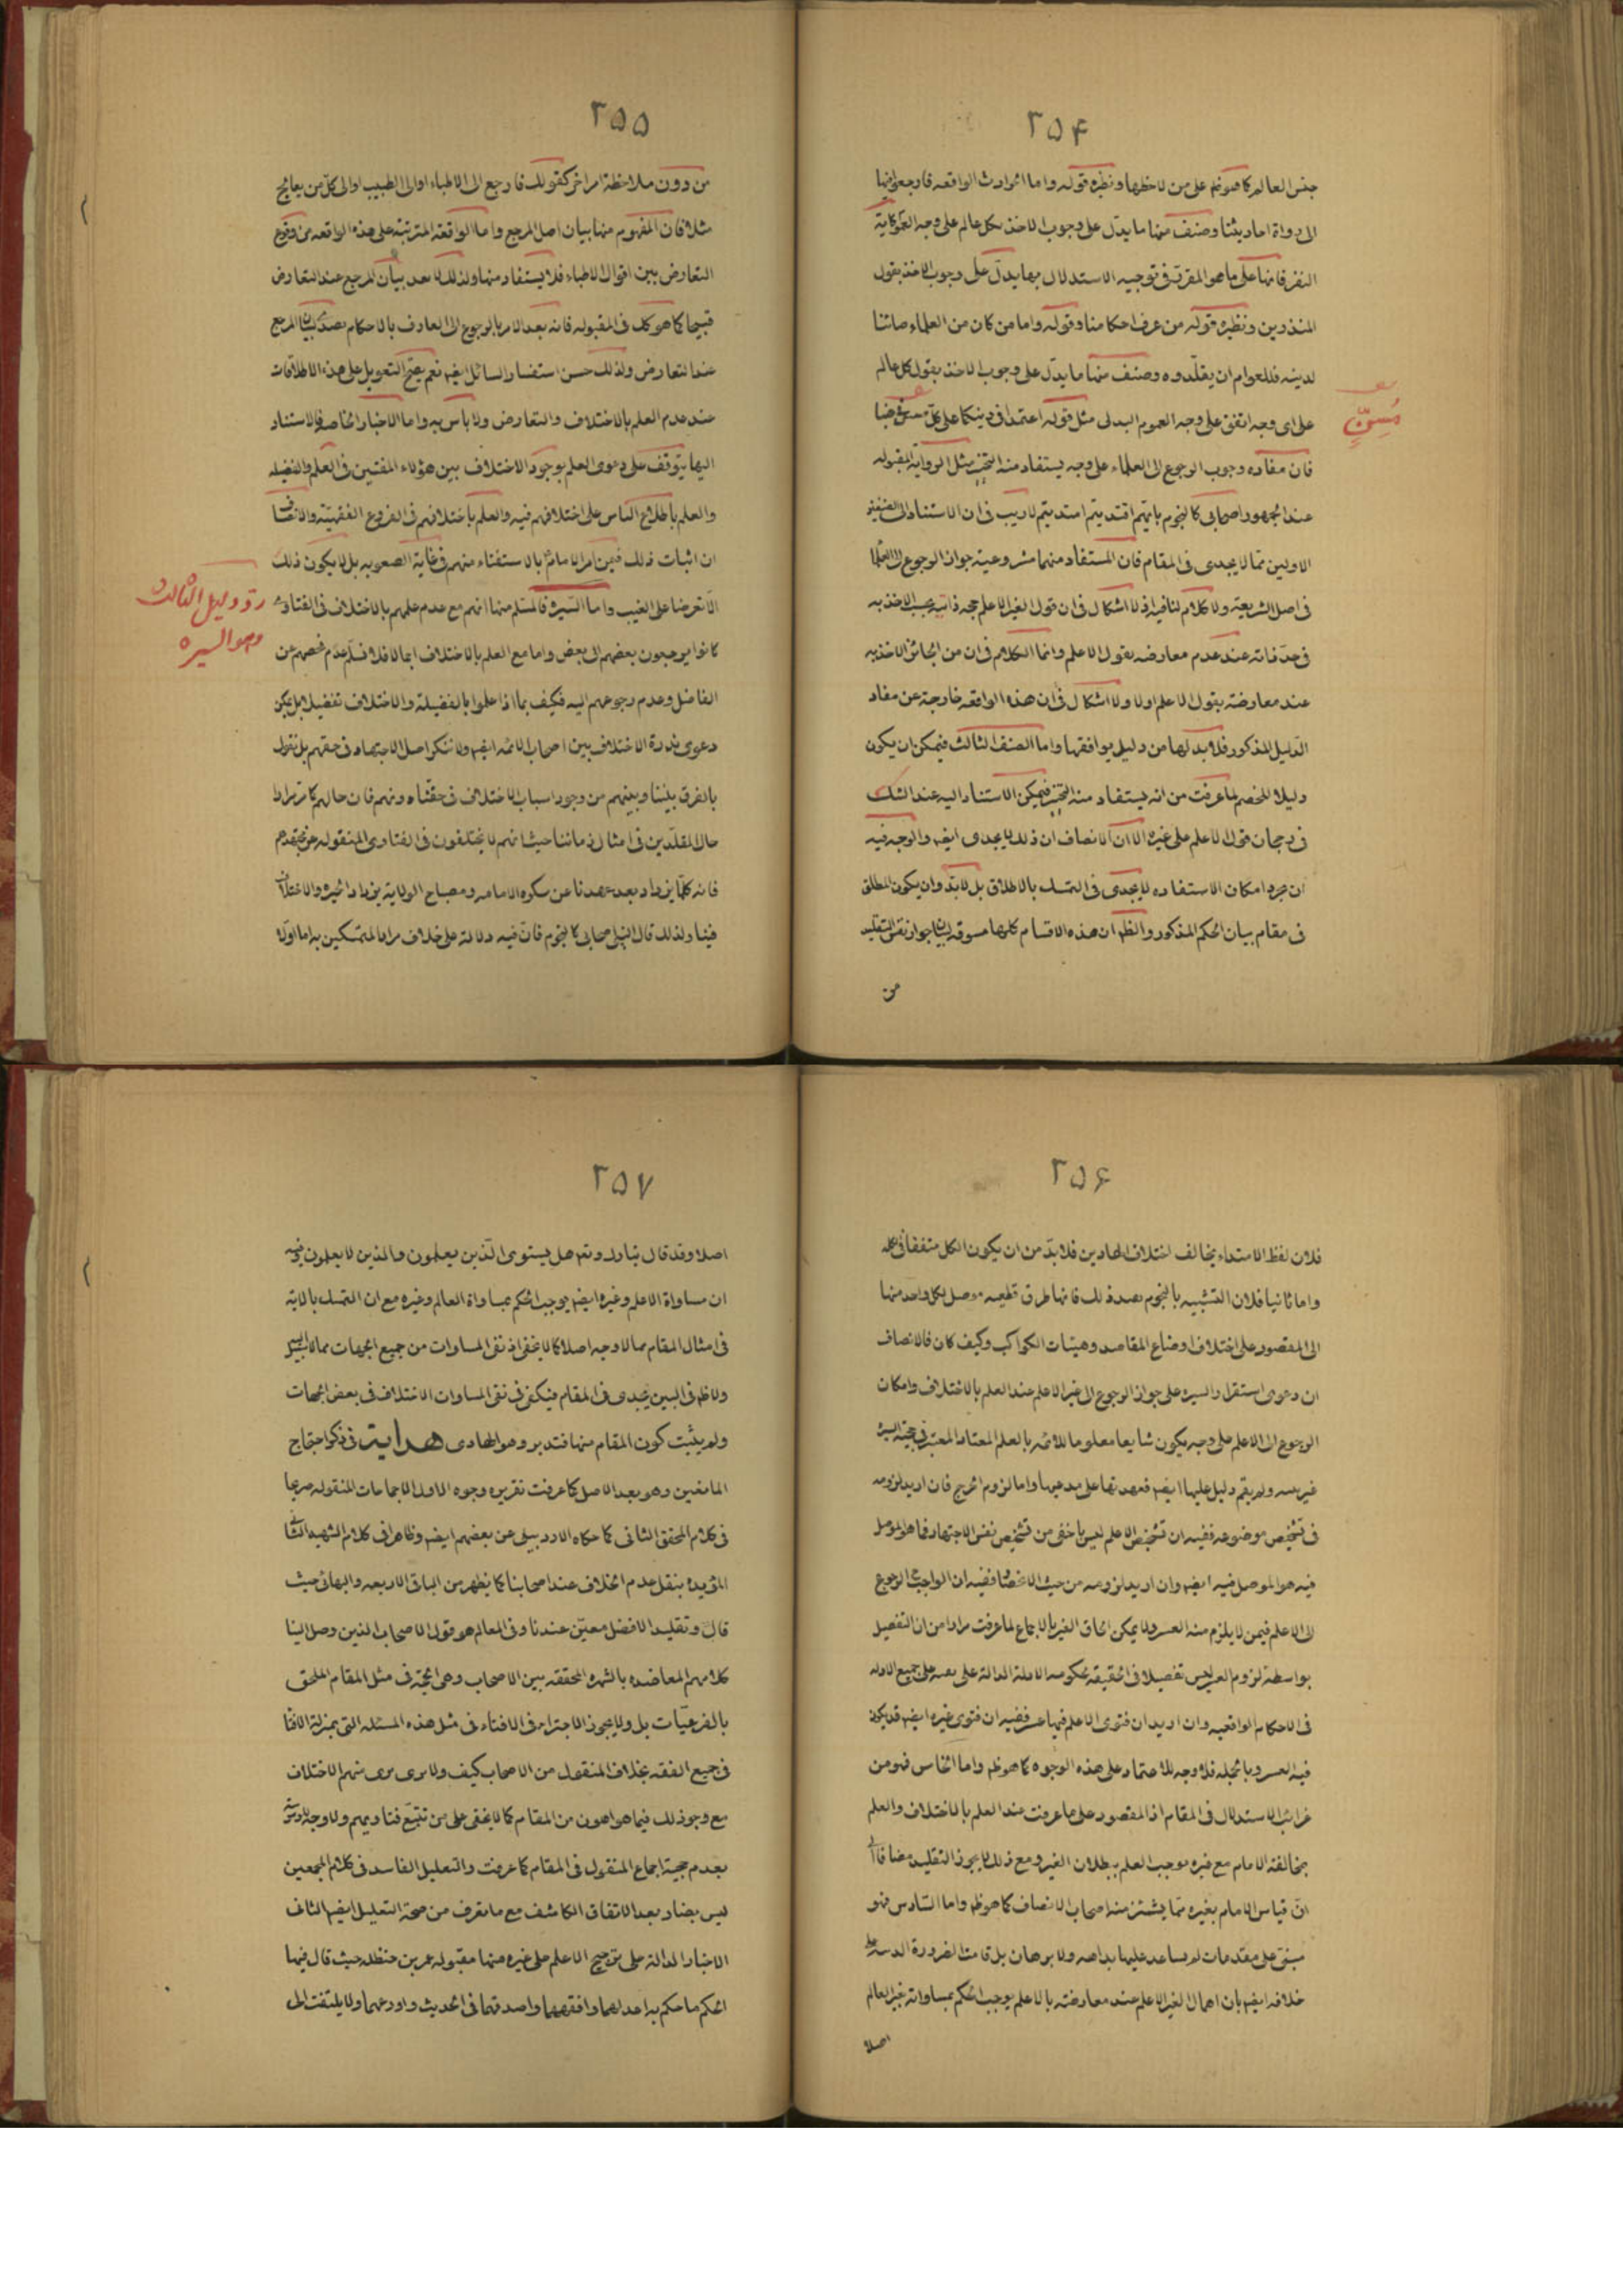 ٢٥۴
جنس العالم كما هو ظم على من لاحظها ونظيره قوله واما الحوادث الواقعه فارجعوا فيها
الى رواة احاديثنا وصنف منها ما يدل على وجوب الاخذ بكل عالم على وجه العموم كاية
النفر فانها على ما هو المقرر فى توجيه الاستدلال بها يدل على وجوب الاخذ بقول
المنذرين ونظيره قوله من عرف احكامنا وقوله واما من كان من العلماء صائنا
لدينه فللعوام ان يقلدوه وصنف منها ما يدل على وجوب الاخذ بقول كل عالم
على اى وجه اتفق على وجه العموم البدلى مثل قوله اعتمدا فى دينكما على كل مسن فى حبنا
مُسِنٍّ
فان مفاده وجوب الرجوع الى العلماء على وجه يستفاد منه التخيير مثل الرواية المقبوله
عند الجمهور اصحابى كالنجوم بايهم اقتديتم اهتديتم لا ريب فى ان الاستناد الى الصنفين
الاولين مما لا يجدى فى المقام فان المستفاد منهما مشروعية جواز الرجوع الى العلماء
فى اصل الشريعة ولا كلام لنا فيه اذ لا اشكال فى ان قول الغير الاعلم حجه ذاتية يجب الاخذ به
فى حد ذاته عند عدم معارضه بقول الاعلم وانما الكلام فى ان من الجائز الاخذ به
عند معارضته بقول الاعلم اولا ولا اشكال فى ان هذه الواقعه خارجة عن مفاد
الدليل المذكور فلا بد لها من دليل يوافقها واما الصنف الثالث فيمكن ان يكون
دليلا للخصم لما عرفت من انه يستفاد منه التخيير فيمكن الاستناد اليه عند الشك
فى رجحان قول الاعلم على غيره الا ان الانصاف ان ذلك لا يجدى ايضم والوجه فيه
ان مجرد امكان الاستفاده لا يجدى فى التمسك بالاطلاق بل لا بد وان يكون المطلق
فى مقام بيان الحكم المذكور والظم ان هذه الاقسام كلها مسوقه لبيان جواز نفس التقليد
من
٢۵۵
من دون ملاحظة امر اخر كقولك فارجع الى الاطباء او الى الطبيب او الى كل من يعالج
مثلا فان المفهوم منها بيان اصل المرجع واما الواقعة المترتبة على هذه الواقعه من وقوع
التعارض بين اقوال الاطباء فلا يستفاد منها ولذلك لا يعد بيان المرجع عند التعارض
قبيحا كما هو كك فى المقبوله فانه بعد الامر بالرجوع الى العارف بالاحكام بصدد بيان المرجع
عند التعارض ولذلك حسن استفسار السائل ايضم نعم يصح التعويل على هذه الاطلاقات
عند عدم العلم بالاختلاف والتعارض ولا باس به واما الاخبار الخاصه فالاستناد
اليها يتوقف على دعوى العلم بوجود الاختلاف بين هؤلاء المفتين فى العلم والفضيله
والعلم باطلاع الناس على اختلافهم فيه والعلم باختلافهم فى الفروع الفقهيّة والانصاف
ان اثبات ذلك فيمن امر الامام بالاستفتاء منهم فى غاية الصعوبه بل لا يكون ذلك
الا تعرضا على الغيب واما السيرة فالمسلم منها انهم مع عدم علمهم بالاختلاف فى الفتاوى
ردّ دليل الثالث
وهو السيره
كانوا يرجعون بعضهم الى بعض واما مع العلم بالاختلاف اجمالا فلا نسلم عدم فحصهم عن
الفاضل وعدم رجوعهم اليه فكيف بما اذا علموا بالفضيلة والاختلاف تفصيلا بل يمكن
دعوى ندرة الاختلاف بين اصحاب الائمه ايضم ولا ننكر اصل الاجتهاد فى حقهم بل نقول
بالفرق بيننا وبينهم من وجود اسباب الاختلاف فى حقنا دونهم فان حالهم كما مر مرارا
حال المقلدين فى امثال زماننا حيث انهم لا يختلفون فى الفتاوى المنقوله عن مجتهدهم
فانه كلما يزداد بعد عهدنا عن مشكوه الامامه ومصباح الولاية يزداد الحيره والاختلاف
فينا ولذلك قال النبى اصحابى كالنجوم فان فيه دلالة على خلاف مراد المتمسكين به اما اولا
٢۵۶
فلان لفظ الاهتداء يخالف اختلاف الهادين فلا بد من ان يكون الكل متفقا فى
واما ثانيا فلان التشبيه بالنجوم بصدد ذلك فانها طرق قطعيه موصل بكل واحد منها
الى المقصود على اختلاف اوضاع المقاصد وهيئات الكواكب وكيف كان فالانصاف
ان دعوى استقرار السيره على جواز الرجوع الى غير الاعلم عند العلم بالاختلاف وامكان
الرجوع الى الاعلم على وجه يكون شايعا معلوما للائمه بالعلم المعتاد المعتبر فى حجية السيرة
غير بينه ولم يقم دليل عليها ايضم فعهدتها على مدعيها واما لزوم الحرج فان اريد لزومه
فى تشخيص موضوعه ففيه ان تشخيص الاعلم ليس باخفى من تشخيص نفس الاجتهاد فما هو الموصل
فيه هو الموصل فيه ايضم وان اريد لزومه من حيث الانحصار ففيه ان الواجب الرجوع
الى الاعلم فيمن لا يلزم منه العسر ولا يمكن الحاق الغير بالاجماع لما عرفت مرارا من ان التفصيل
بواسطة لزوم العسر ليس تفصيلا فى الحقيقة لحكومه الادلة الدالة على نفيه على جميع الادله
فى الاحكام الواقعيه وان اريد ان فتوى الاعلم فيها عسر ففيه ان فتوى غيره ايضم قد يكون
فيه العسر وبالجمله فلا وجه للاعتماد على هذه الوجوه كما هو ظم واما الخامس فهو من
غرائب الاستدلال فى المقام اذ المقصود على ما عرفت عند العلم بالاختلاف والعلم
بمخالفة الامام مع غيره يوجب العلم ببطلان الغير ومع ذلك لا يجوز التقليد مضافا الى
ان قياس الامام بغيره مما يشمئز منه اصحاب الانصاف كما هو ظم واما السادس فهو
مبنى على مقدمات لم يساعد عليها بداهه ولا برهان بل قامت الضرورة الدينيه على
خلافه ايضم بان اهمال الغير الاعلم عند معارضته بالاعلم يوجب الحكم بمساواته بغير العالم
اصلا
٢۵٧
اصلا وقد قال تبارك وتعم هل يستوى الذين يعلمون والذين لا يعلمون فيه
ان مساواة الاعلم وغيره ايضم يوجب الحكم بمساواة العالم وغيره مع ان التمسك بالاية
فى امثال المقام مما لا وجه اصلا كما لا يخفى اذ نفى المساوات من جميع الجهات مما لا سبيل
ولاظم فى البين يجدى فى المقام فيكفى فى نفى المساوات الاختلاف فى بعض الجهات
ولم يثبت كون المقام منها فتدبر وهو الهادى هداية فى ذكر احتجاج
المانعين وهو بعد الاصل كما عرفت تقريره وجوه الاول الاجماعات المنقوله صريحا
فى كلام المحقق الثانى كما حكاه الاردبيلى عن بعضهم ايضم وظاهرا فى كلام الشهيد الثانى
المؤيده بنقل عدم الخلاف عند اصحابنا كما يظهر من الباقى الاربعه والبهائى حيث
قال وتقليد الافضل معين عندنا وفى المعالم هو قول الاصحاب الذين وصل الينا
كلامهم المعاضده بالشهره المحققه بين الاصحاب وهى الحجة فى مثل المقام الملحق
بالفرعيّات بل ولا يجوز الاجتراء فى الافتاء فى مثل هذه المسئله التى بمنزلة الافتاء
فى جميع الفقه بخلاف المنقول من الاصحاب كيف ولا نرى نرى منهم الاختلاف
مع وجود ذلك فيما هو اهون من المقام كما لا يخفى على من تتبع فتاويهم ولا وجه
بعدم حجية اجماع المنقول فى المقام كما عرفت والتعليل الفاسد فى كلام المجمعين
ليس بضار بعد الاتفاق الكاشف مع ما تعرف من صحة التعليل ايضم الثانى
الاخبار الدالة على ترجيح الاعلم على غيره منها مقبوله عمر بن حنظله حيث قال فيها
الحكم ما حكم به اعدلهما وافقههما واصدقهما فى الحديث واورعهما ولا يلتفت الى